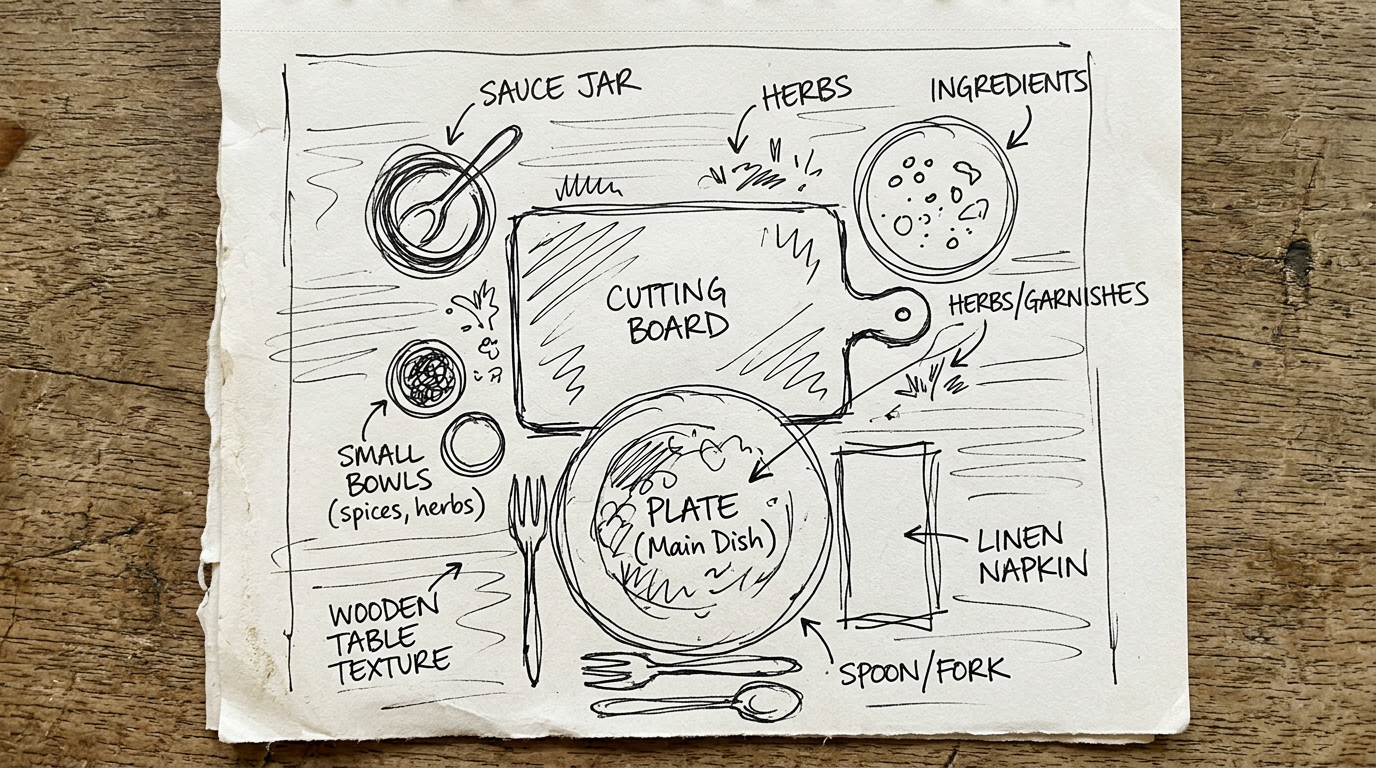 SAUCE JAR
HERBS
INGREDIENTS
CUTTING
BOARD
HERBS/GARNISHES
SMALL
BOWLS
(spices, herbs)
PLATE
(Main Dish)
LINEN
NAPKIN
WOODEN
TABLE
TEXTURE
SPOON/FORK